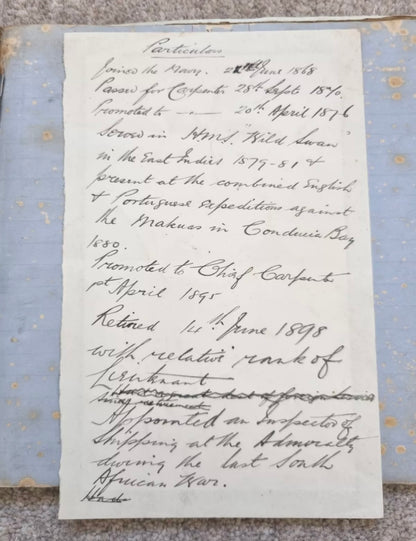 Particulars
Joined the Navy. June 1868
Passed for Carpenter 28th Sept. 1870.
Promoted to —"— 20th April 1876
Served in HMS. "Wild Swan"
in the East Indies 1879-81 &
present at the combined English
& Portuguese Expeditions against
the Makuas in Conducia Bay
1880.
Promoted to Chief Carpenter
1st April 1895
Retired 14th June 1898
with relative rank of
Lieutenant
since retirement
Appointed an Inspector of
Shipping at the Admiralty
during the last South
African War.
Had